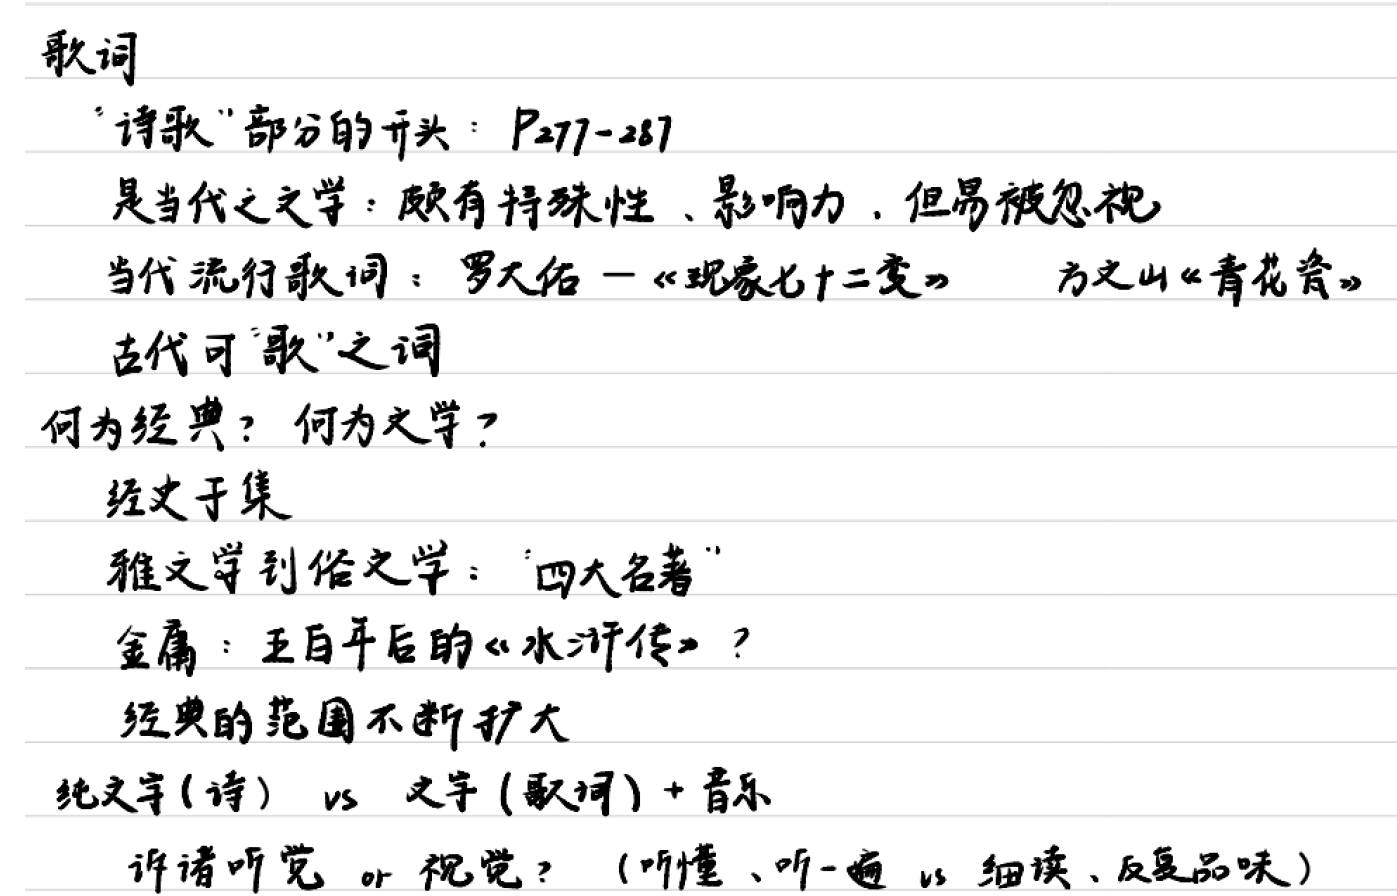 歌词
“诗歌”部分的开头：P277-287
是当代之文学：颇有特殊性、影响力，但易被忽视
当代流行歌词：罗大佑—《现象七十二变》 方文山《青花瓷》
古代可“歌”之词
何为经典？何为文学？
经史子集
雅文学到俗文学：“四大名著”
金庸：五百年后的《水浒传》？
经典的范围不断扩大
纯文字（诗） vs 文字（歌词）+音乐
诉诸听觉 or 视觉？（听懂、听一遍 vs 细读、反复品味）